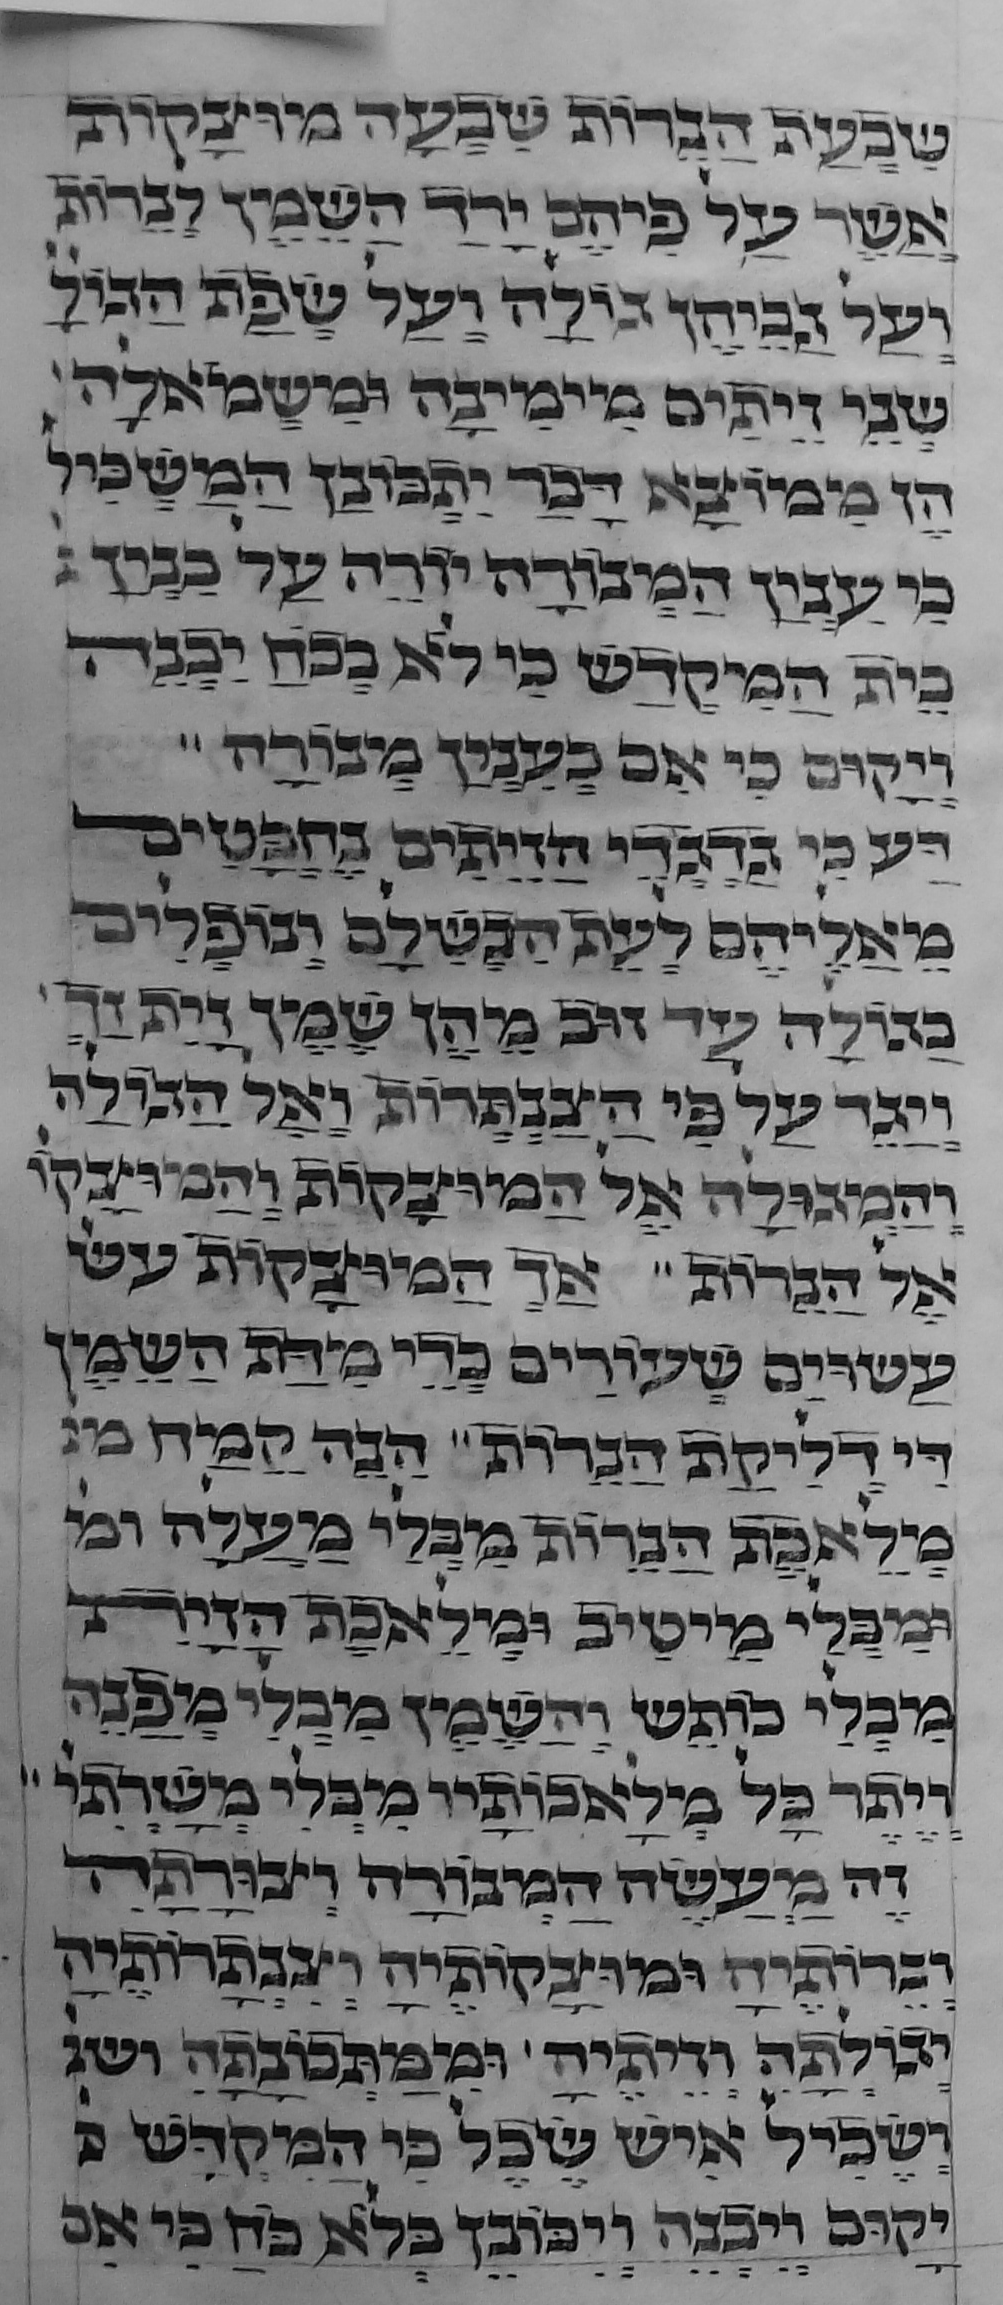 שִבְעַת הַנֵרוֹת שִׁבְעָה מוּצָקוֹת
אֲשֶׁר עַל פִיהֶם יֵרֵד הַשֶׁמֶן לַנֵרוֹת
וְעַל גַבֵיהֶן גוּלָה וְעַל שְׂפַת הַגוּלָ
שְׁנֵי זֵיתִים מִיְמִינָה וּמִשְׂמֹאלָה
הֵן מִמוֹצָא דָבָר יִתְבּוֹנֵן הַמַשְׂכִיל
כִי עִנְיַן הַמְנוֹרָה יוֹרֶה עַל בִנְיַן
בֵית הַמִקְדָשׁ כִי לֹא בְכֹחַ יִבָנֶה
וְיָקוּם כִי אִם כְעִנְיַן מְנוֹרָה
דַע כִי גַרְגְרֵי הַזֵיתִים נֶחְבָטִים
מֵאֲלֵיהֶם לְעֵת הִבָשְׁלָם וְנוֹפְלִים
בַגוּלָה עַד זוּב מֵהֶן שֶׁמֶן זַיִת זַךְ
וְיֻגַר עַל פִי הַצַנְתְרוֹת וְאֶל הַגוּלָה
וְהַמְגוּלָה אֶל הַמוּצָקוֹת וְהַמוּצָקוֹ
אֶל הַנֵרוֹת אַךְ הַמוּצָקוֹת עש
עֲשׂוּיִם שְׁעוּרִים כְדֵי מִדַת הַשֶׁמֶן
דֵי דְלֵיקַת הַנֵרוֹת הִנֵה קֶמַח מִו
מְלֶאכֶת הַנֵרוֹת מִבְלִי מַעֲלֶה ומ
וּמִבְלִי מֵיטִיב וּמְלֶאכֶת הַזַיִת
מִבְלִי כוֹתֵשׁ וְהַשֶׁמֶן מִבְלִי מְפַנֶה
וְיֶתֶר כָל מְלָאכוֹתָיו מִבְלִי מְשָׁרְתִי
זֶה מַעֲשֵׂה הַמְנוֹרָה וְצוּרָתָהּ
וְנֵרוֹתֶיהָ וּמוּצָקוֹתֶיהָ וְצַנְתְרוֹתֶיהָ
וְגוּלָתָהּ וְזֵיתֶיהָ וּמִמַתְכוּנְתָהּ ושנ
יַשְׂכִיל אִישׁ שֵׂכֶל כִי הַמִקְדָשׁ
יָקוּם וְיִבָנֶה וְיִכּוֹנֵן בְלֹא כֹחַ כִי אִם